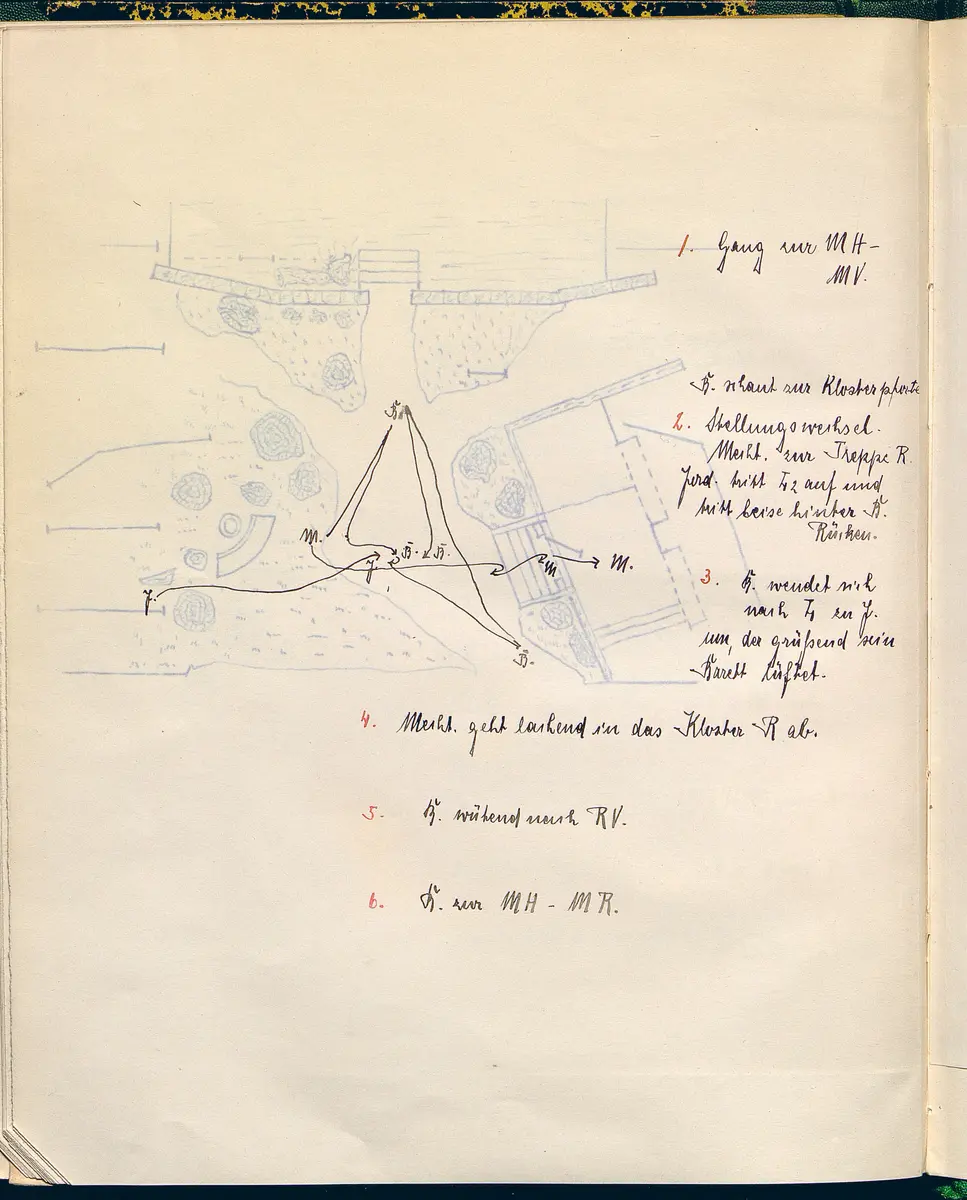 1. Gang zur MH-
MV.
B. schaut zur Klosterpforte
2. Stellungswechsel.
Mecht. zur Treppe R.
Ferd. tritt L2 auf und
tritt leise hinter B.
Rücken.
3. B. wendet sich
nach L zu F.
um, der grüßend sein
Barett lüftet.
4. Mecht. geht lachend in das Kloster R ab.
5. B. wütend nach RV.
6. B. zur MH - MR.
B.
M.
F.
B. B.
M
M.
F.
B.